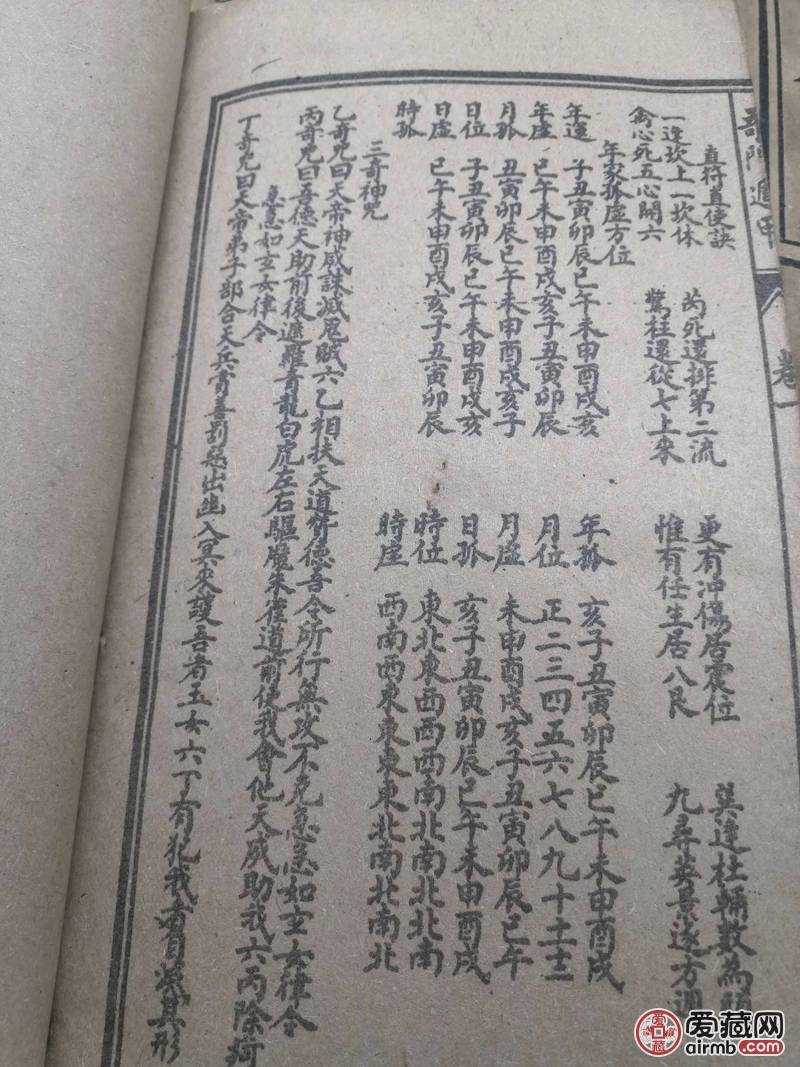 奇門遁甲 卷一
直符直使訣
一逢坎上一坎休 芮死還排第二流 更有冲傷居震位 巽逢杜輔數為頭
禽心死五心開六 驚柱還從七上來 惟有任生居八艮 九尋英景逐方迴
年家孤虛方位
年運 子丑寅卯辰巳午未申酉戌亥 年孤 亥子丑寅卯辰巳午未申酉戌
年虛 巳午未申酉戌亥子丑寅卯辰 月位 正二三四五六七八九十十一十二
月孤 丑寅卯辰巳午未申酉戌亥子 月虛 未申酉戌亥子丑寅卯辰巳午
日位 子丑寅卯辰巳午未申酉戌亥 日孤 亥子丑寅卯辰巳午未申酉戌
日虛 巳午未申酉戌亥子丑寅卯辰 時位 東北東西西西南北南北北南
時孤 時虛 西南西東東東東北南北南北
三奇神咒
乙奇咒曰天帝神威誅滅鬼賊六乙相扶天道贊德吾令所行無攻不克急急如玄女律令
丙奇咒曰吾德天助前後遮羅青龍白虎左右驅魔朱雀道前使我會他天威助我六丙除痾
急急如玄女律令
丁奇咒曰天帝弟子部令天兵賞善罰惡出幽入冥來護吾者玉女六丁有犯我者自滅其形
爱藏网
airmb.com